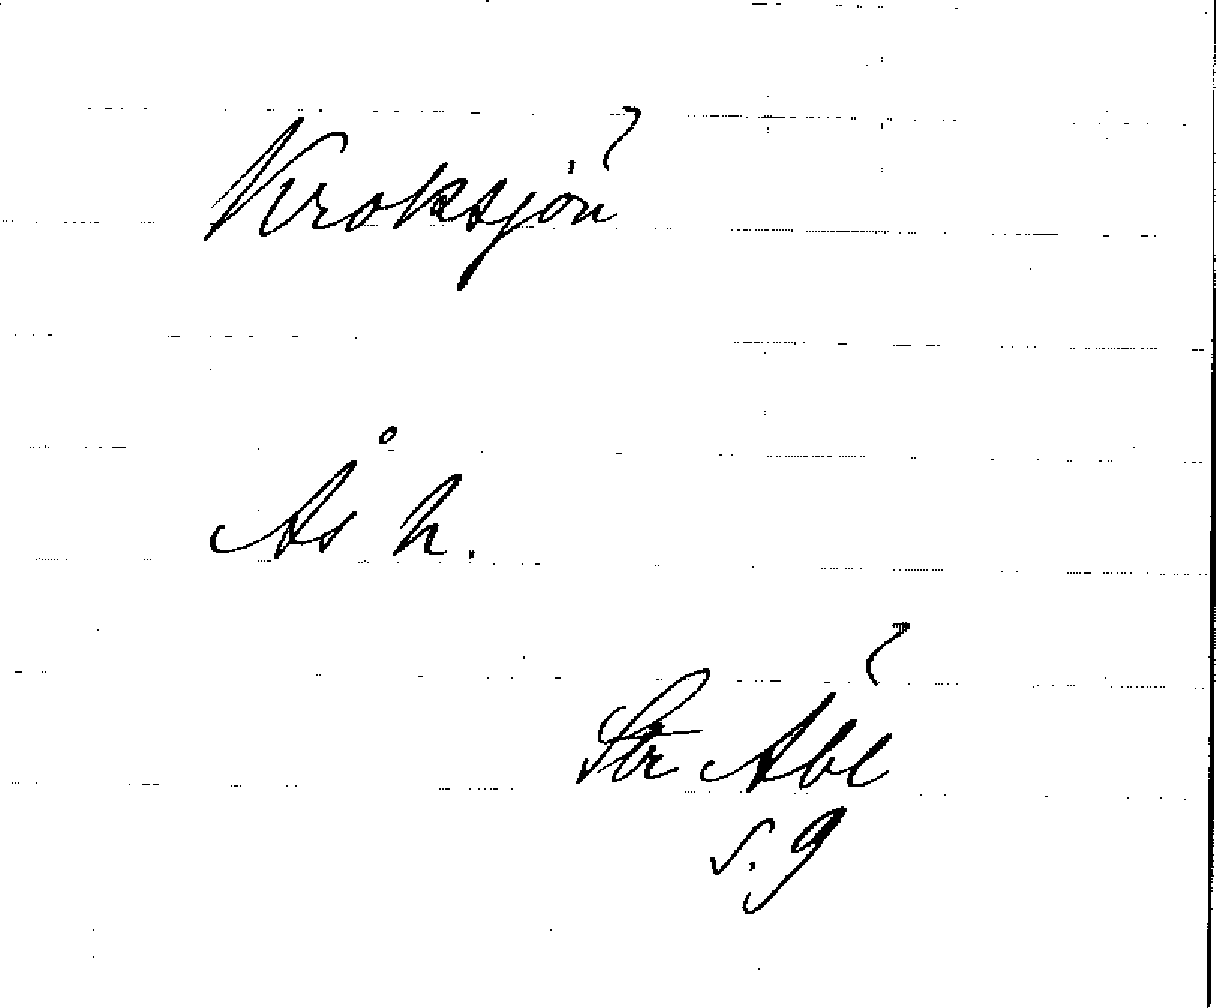 Kroksjön
Ås h.
Str Åbl
s. 9